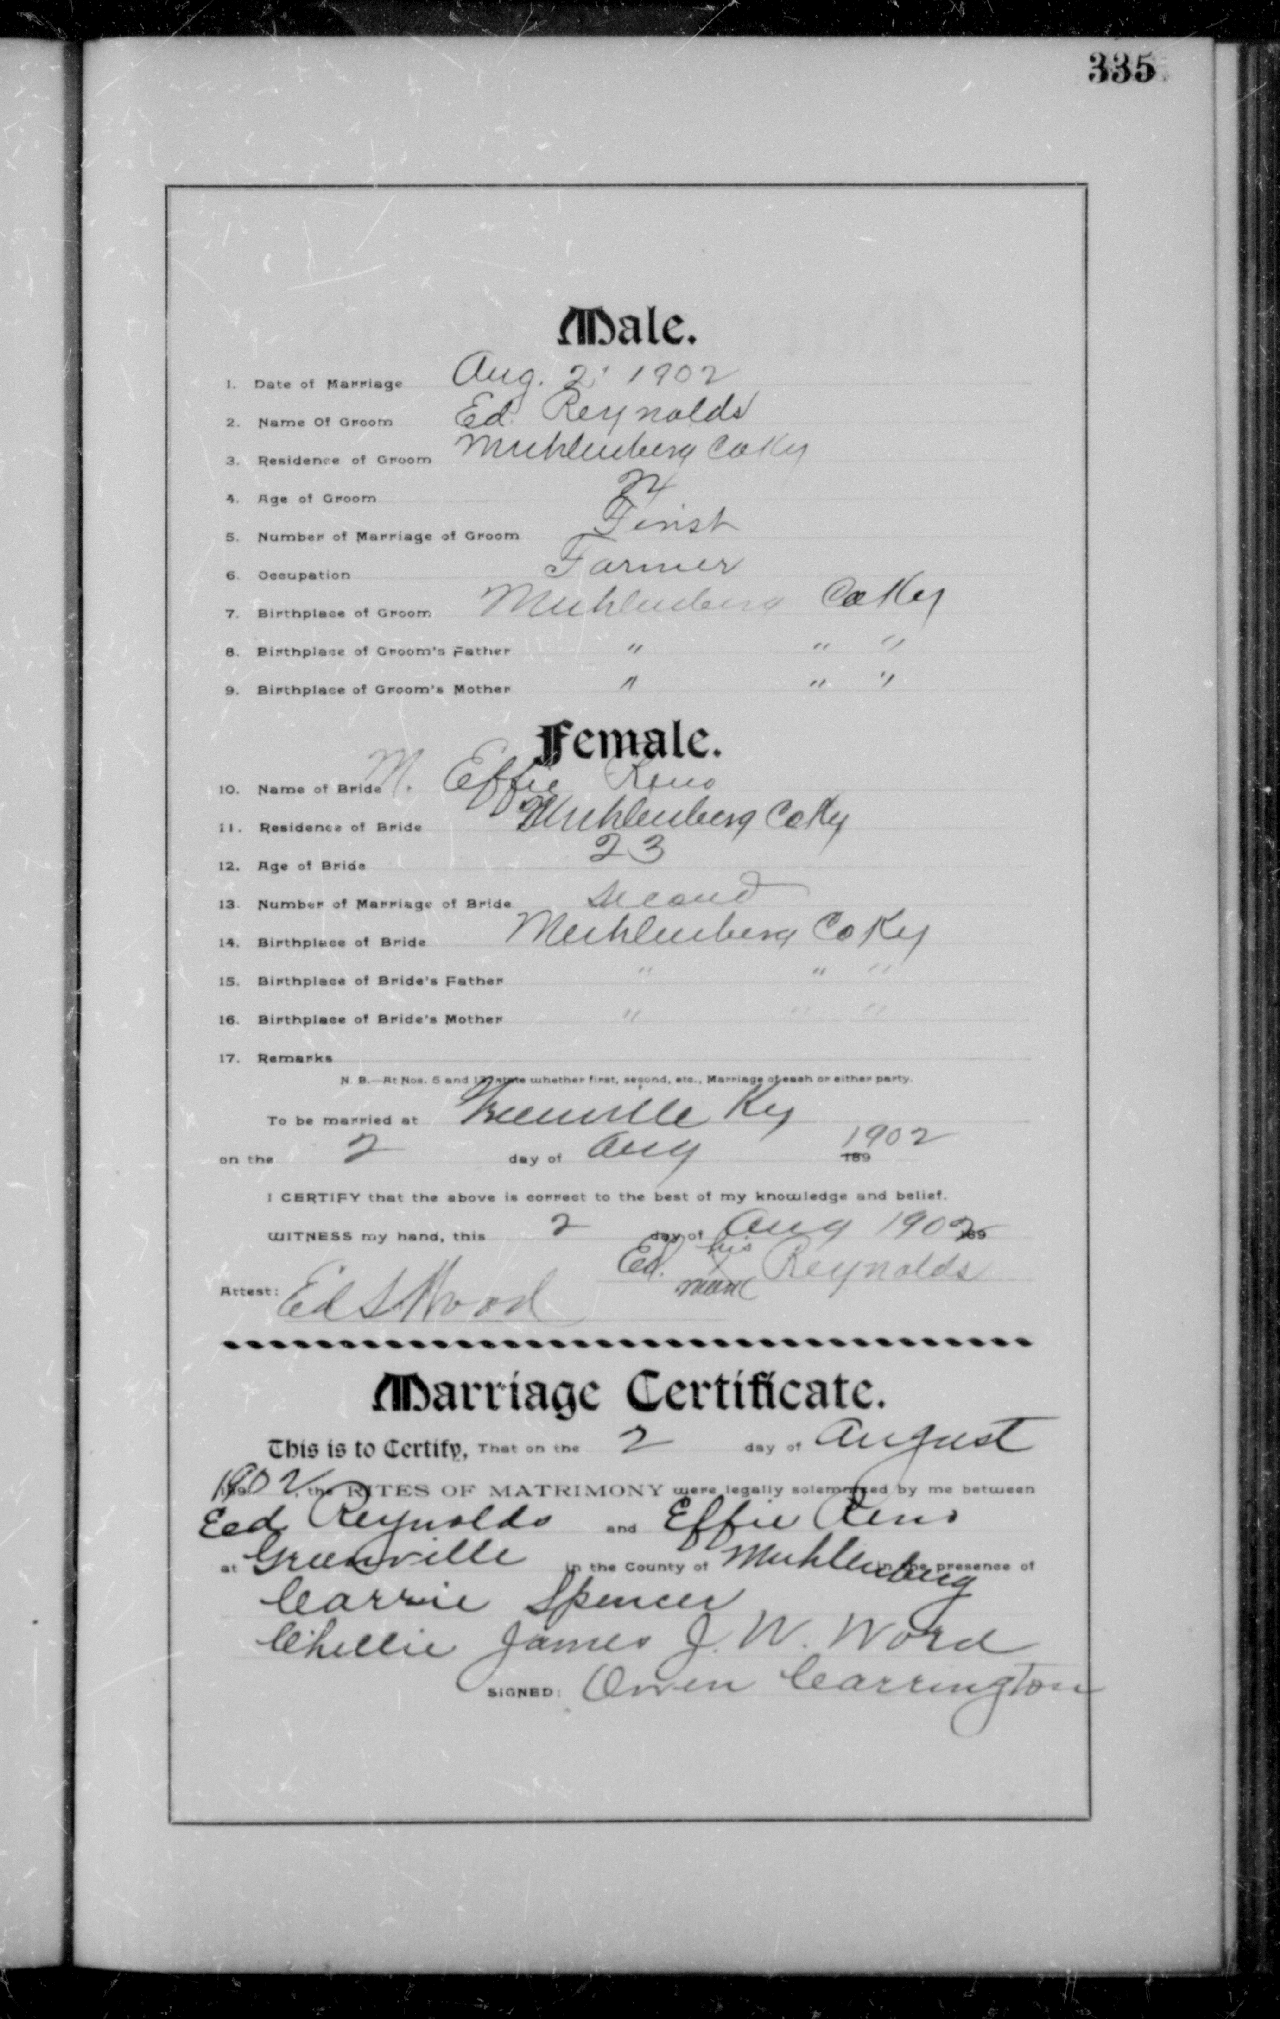 335
Male.
1. Date of Marriage Aug. 2' 1902
2. Name Of Groom Ed. Reynolds
3. Residence of Groom Muhlenberg Co Ky
4. Age of Groom
5. Number of Marriage of Groom First
6. Occupation Farmer
7. Birthplace of Groom Muhlenberg Co Ky
8. Birthplace of Groom's Father " " "
9. Birthplace of Groom's Mother " " "
Female.
10. Name of Bride M. Effie Reno
11. Residence of Bride Muhlenberg Co Ky
12. Age of Bride 23
13. Number of Marriage of Bride Second
14. Birthplace of Bride Muhlenberg Co Ky
15. Birthplace of Bride's Father " " "
16. Birthplace of Bride's Mother " " "
17. Remarks
N. B.—At Nos. 5 and 13 state whether first, second, etc., Marriage of each or either party.
To be married at Greenville Ky
on the 2 day of Aug 1902 189
I CERTIFY that the above is correct to the best of my knowledge and belief.
WITNESS my hand, this 2 day of Aug 1902 189
Ed. his X mark Reynolds
Attest: Ed S Wood
Marriage Certificate.
This is to Certify, That on the 2 day of August
1902, the RITES OF MATRIMONY were legally solemnized by me between
Eed Reynolds and Effie Reno
at Greenville in the County of Muhlenberg in the presence of
Carrie Spencer
Chellie James J. W. Word
SIGNED: Owen Carrington